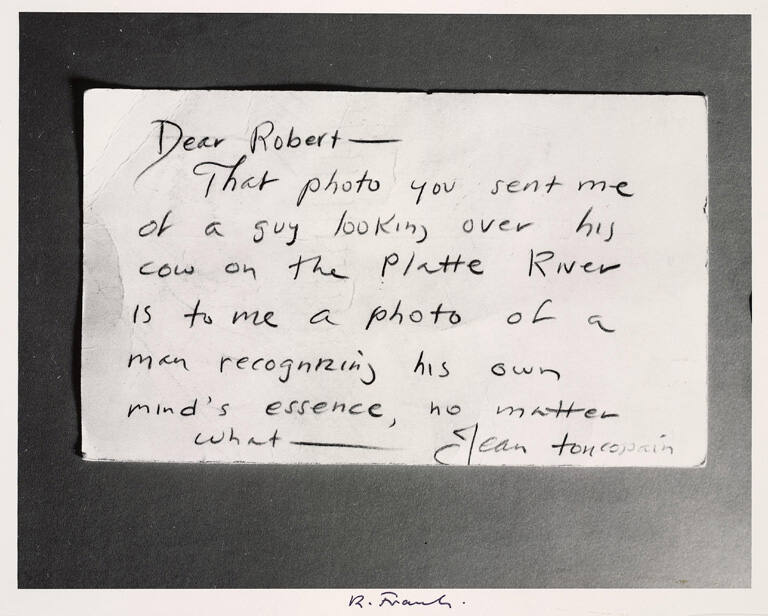 Dear Robert —
That photo you sent me
of a guy looking over his
cow on the Platte River
is to me a photo of a
man recognizing his own
mind's essence, no matter
what — Jean
R. Frank.